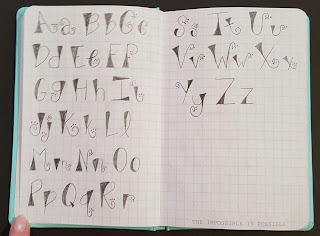 Aa Bb Cc
Dd Ee Ff
Gg Hh Ii
Jj Kk Ll
Mm Nn Oo
Pp Qq Rr
Ss Tt Uu
Vv Ww Xx
Yy Zz
THE IMPOSSIBLE IS POSSIBLE